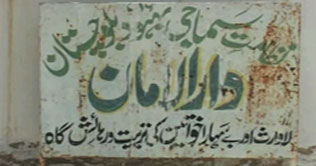 نظامت سماجی بہبود بلوچستان
دارالامان
لاوارث اور بے سہارا خواتین کی تربیت و رہائش گاہ